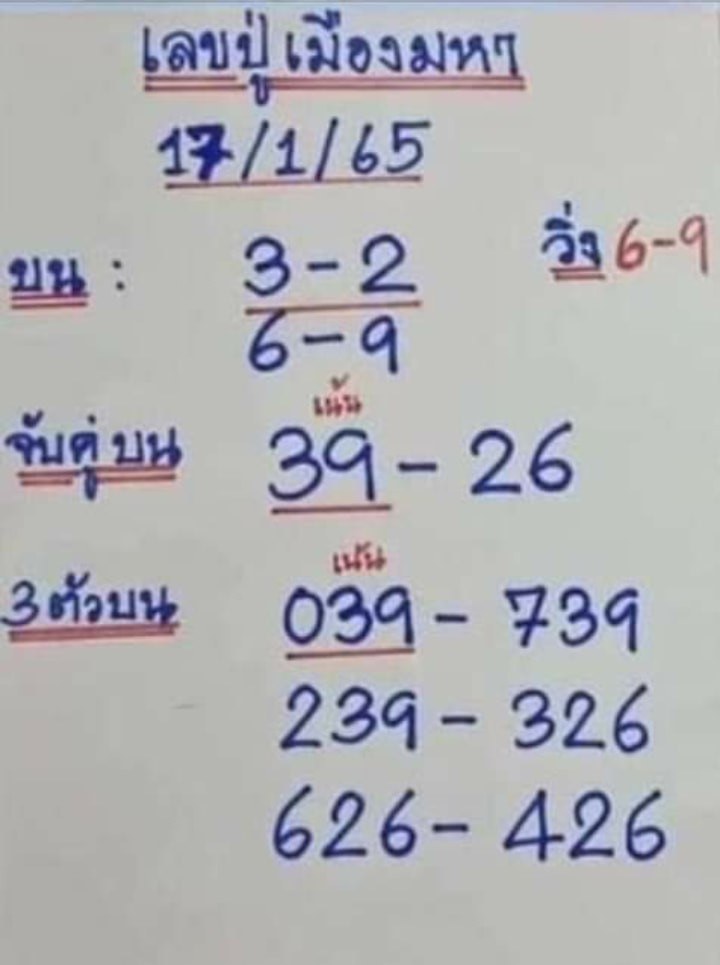 เลขปู่เมืองมหา
17/1/65
บน : 3-2 วิ่ง 6-9
6-9
เน้น
จับคู่บน 39-26
เน้น
3 ตัวบน 039-739
239-326
626-426